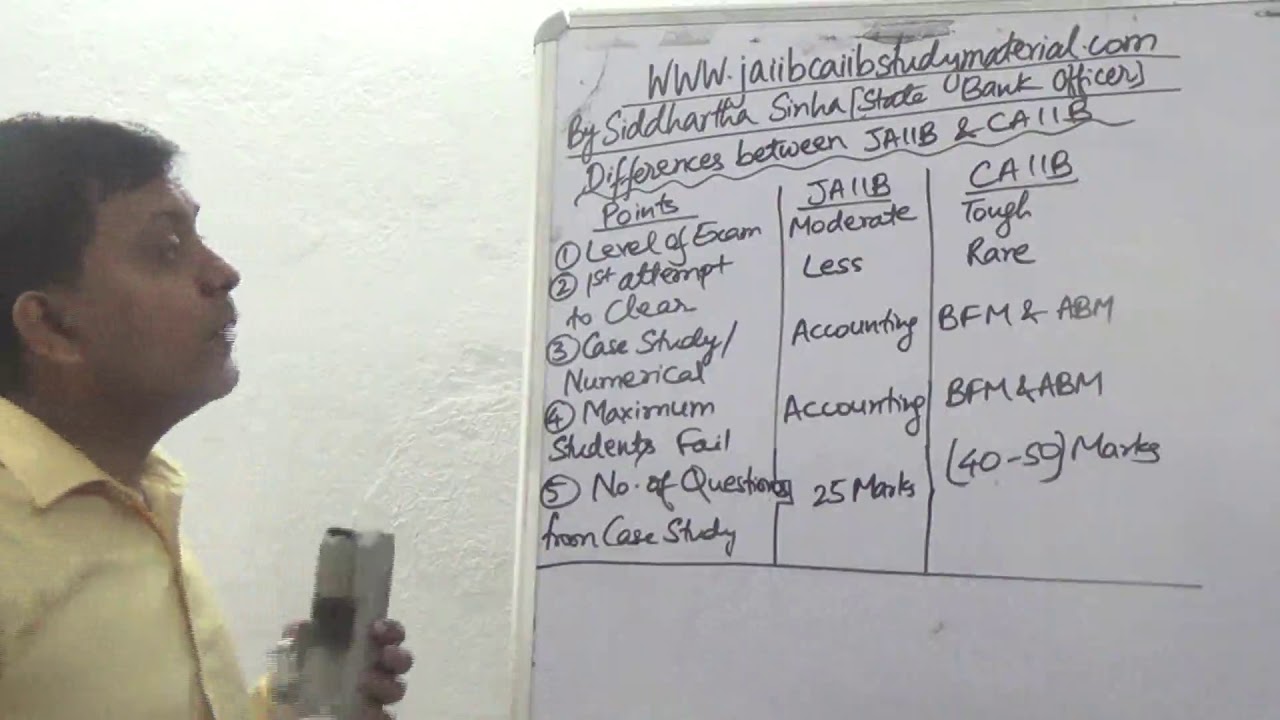 WWW.jaiibcaiibstudymaterial.com
By Siddhartha Sinha [State Bank Officer]
Differences between JAIIB & CAIIB
Points JAIIB CAIIB
① Level of Exam Moderate Tough
② 1st attempt Less Rare
to Clear
③ Case Study/ Accounting BFM & ABM
Numerical
④ Maximum Accounting BFM & ABM
Students Fail
⑤ No. of Questions 25 Marks (40-50) Marks
from Case Study